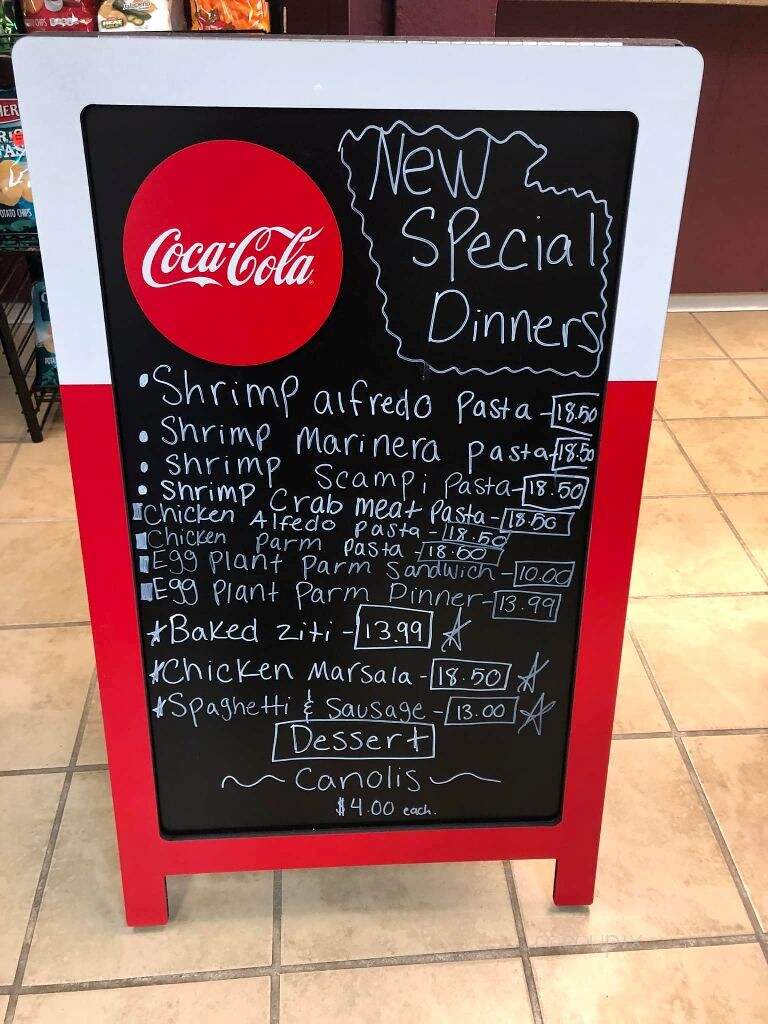 Jalapeno
CHIPS
HER
POTATO CHIPS
Coca-Cola
New
Special
Dinners
• Shrimp alfredo Pasta - 18.50
• Shrimp Marinera pasta - 18.50
• Shrimp Scampi Pasta - 18.50
• Shrimp Crab meat Pasta - 18.50
Chicken Alfedo pasta - 18.50
Chicken Parm Pasta - 18.50
Egg Plant Parm Sandwich - 10.00
Egg Plant Parm Dinner - 13.99
Baked ziti - 13.99
Chicken Marsala - 18.50
Spaghetti & Sausage - 13.00
Dessert
~ Canolis ~
$4.00 each.